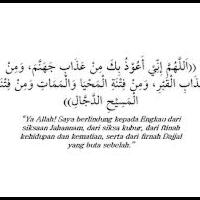 ((اَللَّهُمَّ إِنِّي أَعُوْذُ بِكَ مِنْ عَذَابِ جَهَنَّمَ، وَمِنْ
عَذَابِ الْقَبْرِ، وَمِنْ فِتْنَةِ الْمَحْيَا وَالْمَمَاتِ وَمِنْ فِتْنَةِ
الْمَسِيْحِ الدَّجَّالِ))
"Ya Allah! Saya berlindung kepada Engkau dari
siksaan Jahannam, dari siksa kubur, dari fitnah
kehidupan dan kematian, serta dari firnah Dajjal
yang buta sebelah."